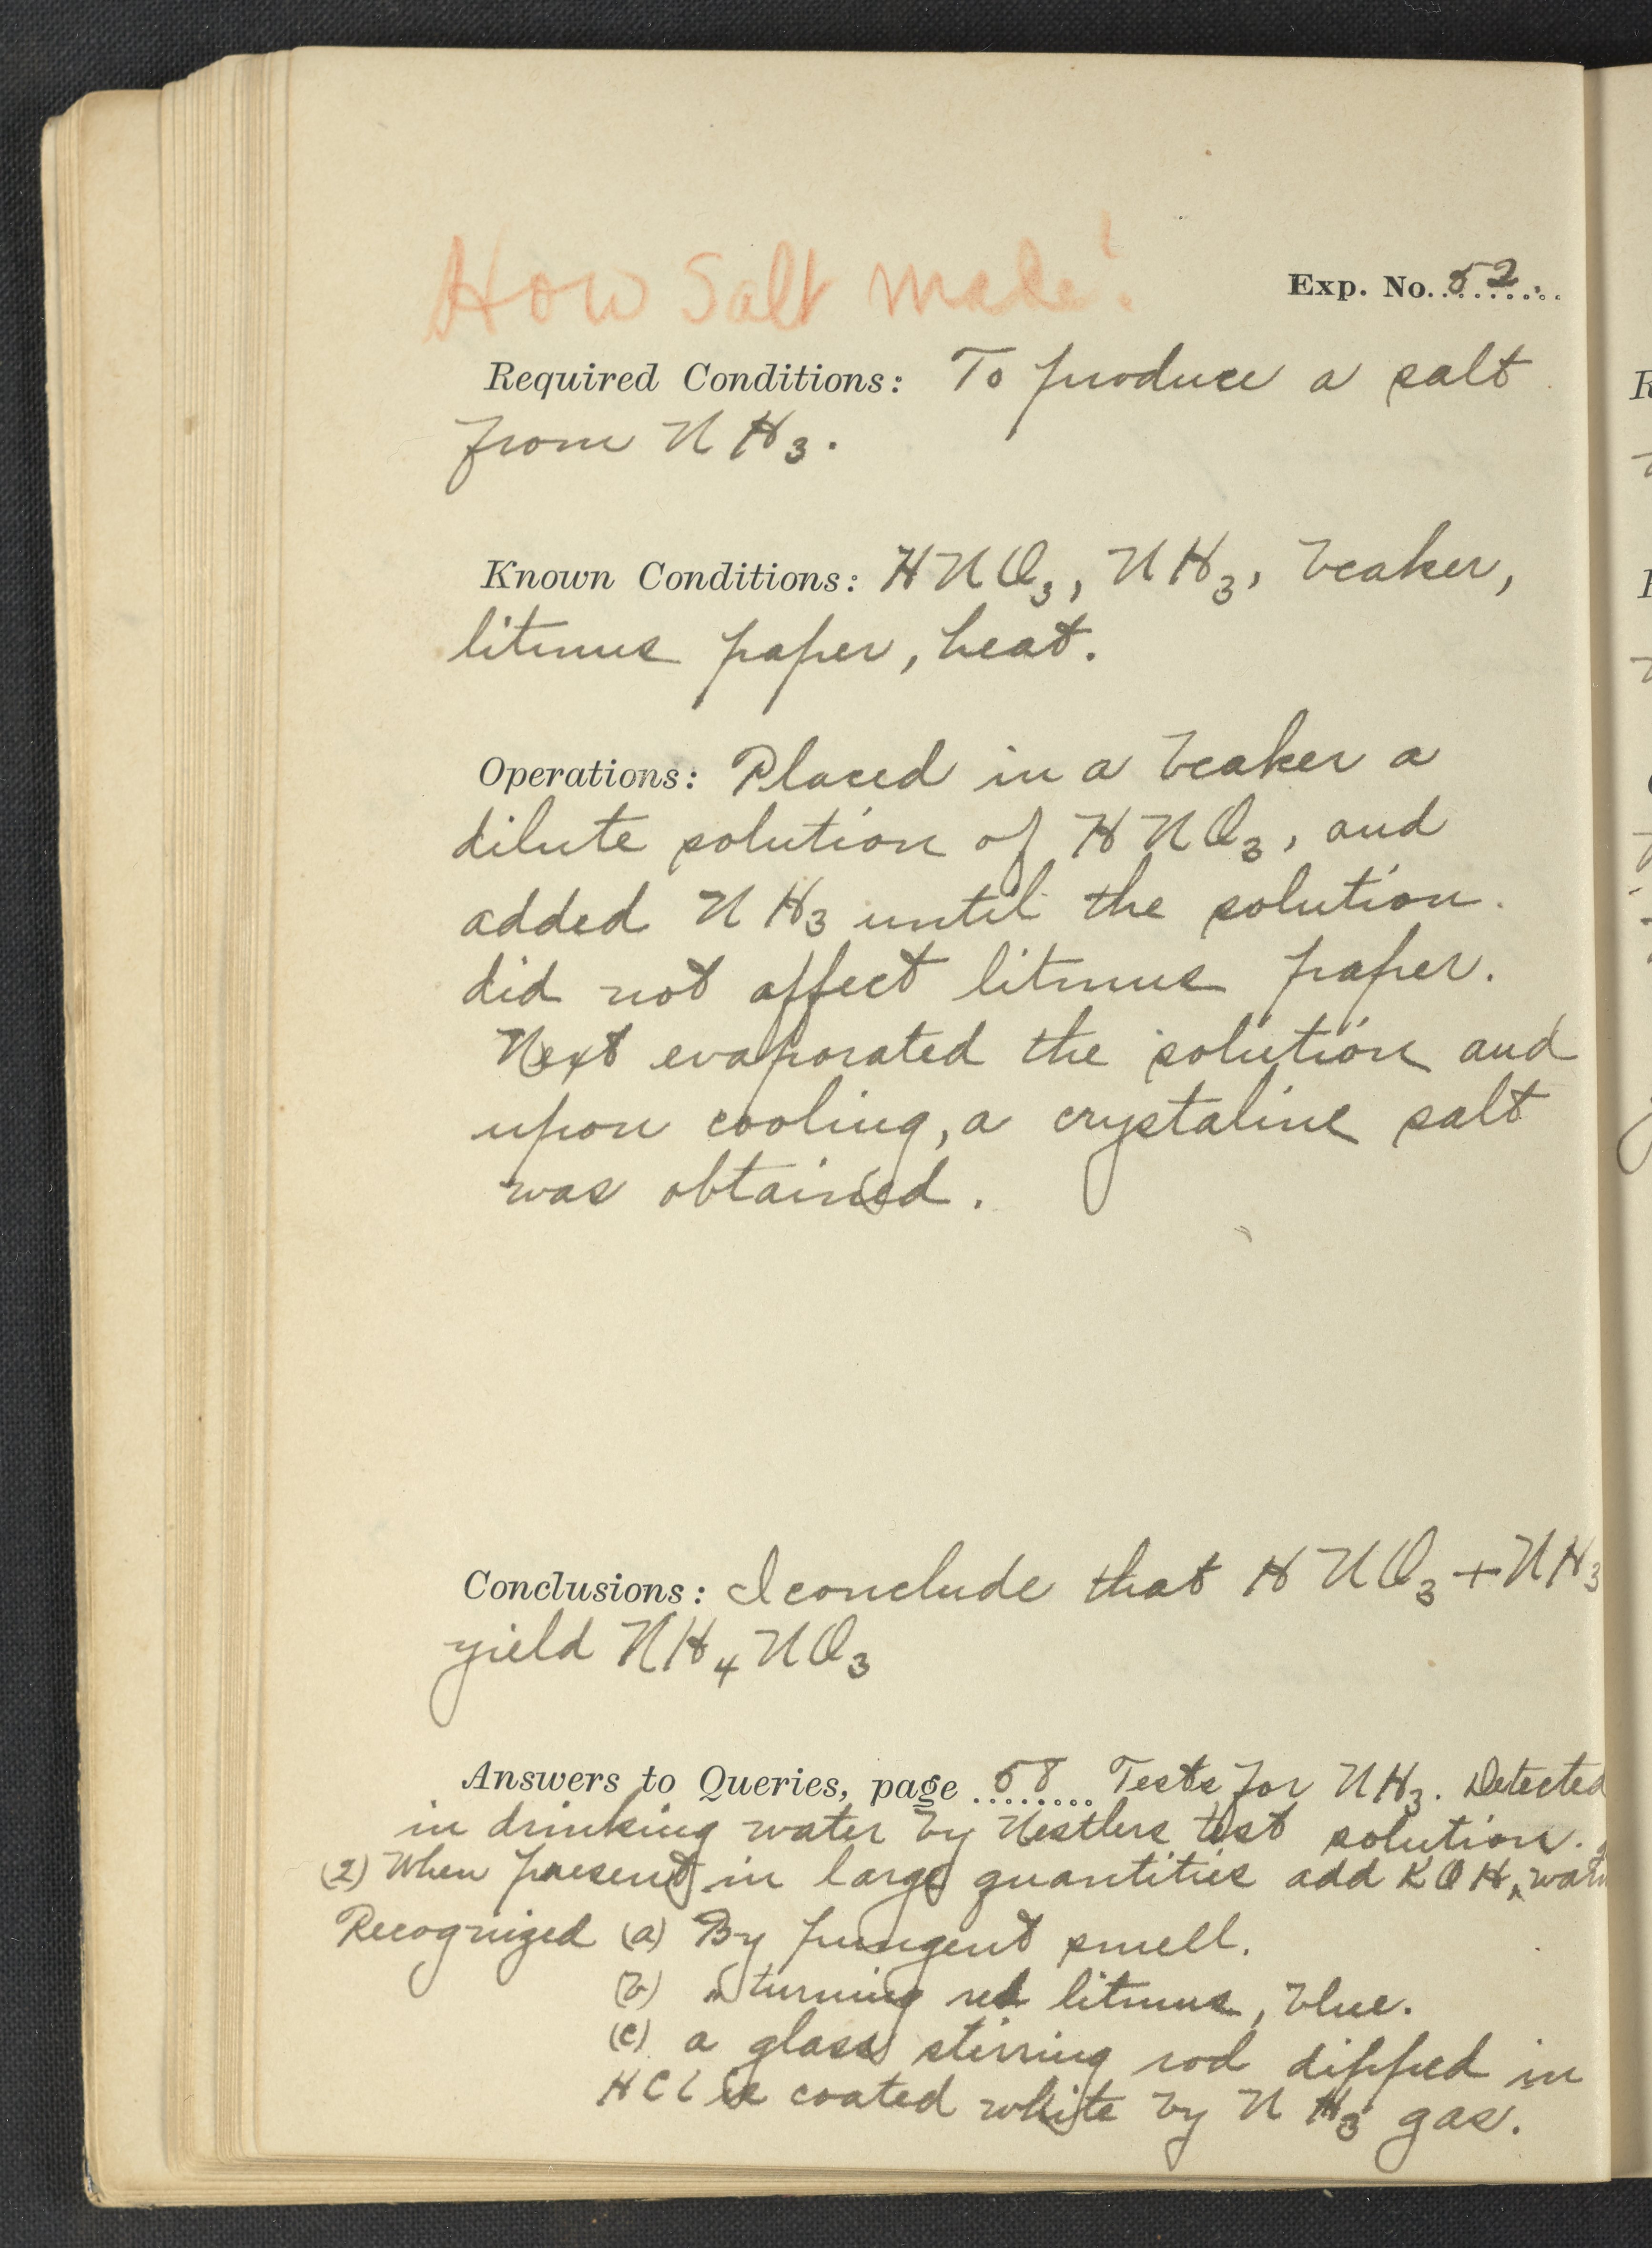 How Salt made?
Exp. No. 52.
Required Conditions: To produce a salt
from NH3.
Known Conditions: HNO3, NH3, beaker,
litmus paper, heat.
Operations: Placed in a beaker a
dilute solution of HNO3, and
added NH3 until the solution
did not affect litmus paper.
Next evaporated the solution and
upon cooling, a crystaline salt
was obtained.
Conclusions: I conclude that HNO3 + NH3
yield NH4NO3
Answers to Queries, page 58 Tests for NH3. Detected
in drinking water by Nestlers test solution.
(2) When present in large quantities add KOH, warm
Recognized (a) By pungent smell.
(b) " turning red litmus, blue.
(c) a glass stirring rod dipped in
HCl is coated white by NH3 gas.